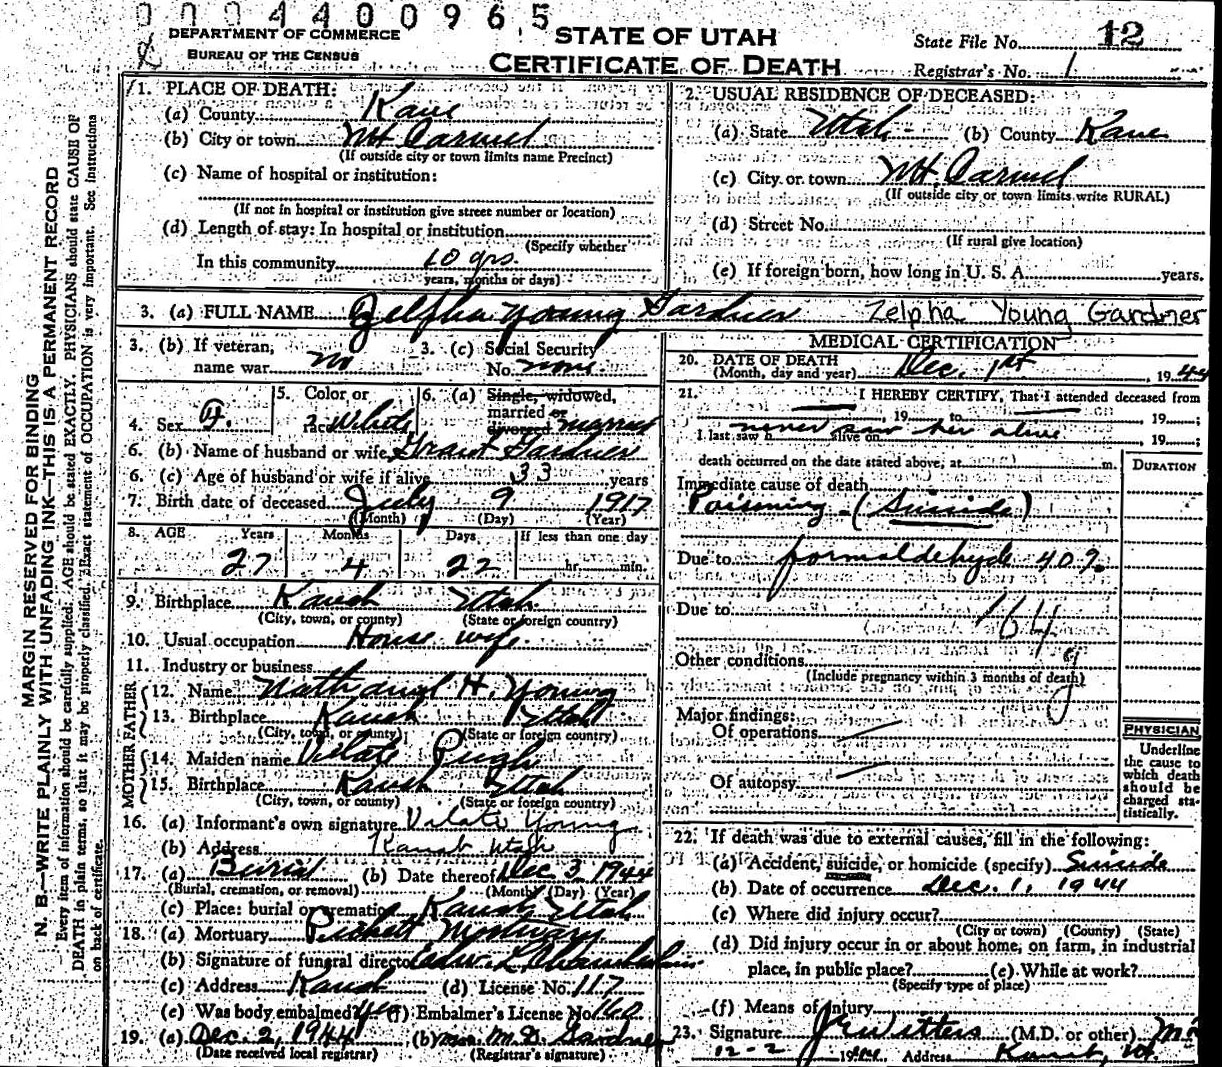 0004400965
DEPARTMENT OF COMMERCE
BUREAU OF THE CENSUS
STATE OF UTAH
CERTIFICATE OF DEATH
State File No. 12
Registrar's No. 1
MARGIN RESERVED FOR BINDING
N. B.—WRITE PLAINLY WITH UNFADING INK—THIS IS A PERMANENT RECORD
Every item of information should be carefully supplied. AGE should be stated EXACTLY. PHYSICIANS should state CAUSE OF
DEATH in plain terms, so that it may be properly classified. Exact statement of OCCUPATION is very important. See Instructions
on back of certificate.
1. PLACE OF DEATH:
(a) County Kane
(b) City or town Mt Carmel
(If outside city or town limits name Precinct)
(c) Name of hospital or institution:
(If not in hospital or institution give street number or location)
(d) Length of stay: In hospital or institution
(Specify whether
In this community 10 yrs.
years, months or days)
2. USUAL RESIDENCE OF DECEASED:
(a) State Utah (b) County Kane
(c) City or town Mt. Carmel
(If outside city or town limits write RURAL)
(d) Street No.
(If rural give location)
(e) If foreign born, how long in U. S. A. years.
3. (a) FULL NAME Zelpha Young Gardner Zelpha Young Gardner
3. (b) If veteran, name war no 3. (c) Social Security No. none
4. Sex F. 5. Color or race White 6. (a) Single, widowed, married or divorced married
6. (b) Name of husband or wife Grant Gardner
6. (c) Age of husband or wife if alive 33 years
7. Birth date of deceased July 9 1917
(Month) (Day) (Year)
8. AGE Years Months Days If less than one day
27 4 22 hr. min.
9. Birthplace Kanab Utah
(City, town, or county) (State or foreign country)
10. Usual occupation House wife
11. Industry or business
FATHER
12. Name Nathanial H. Young
13. Birthplace Kanab Utah
(City, town, or county) (State or foreign country)
MOTHER
14. Maiden name Vilate Pugh
15. Birthplace Kanab Utah
(City, town, or county) (State or foreign country)
16. (a) Informant's own signature Vilate Young
(b) Address Kanab Utah
17. (a) Burial (b) Date thereof Dec 3 1944
(Burial, cremation, or removal) (Month) (Day) (Year)
(c) Place: burial or cremation Kanab Utah
18. (a) Mortuary Mortuary
(b) Signature of funeral director Chamberlain
(c) Address Kanab (d) License No. 117
(e) Was body embalmed? yes (f) Embalmer's License No. 160
19. (a) Dec. 2, 1944 (b) Mrs. M. D. Gardner
(Date received local registrar) (Registrar's signature)
MEDICAL CERTIFICATION
20. DATE OF DEATH Dec. 1st, 1944
(Month, day and year)
21. I HEREBY CERTIFY, That I attended deceased from
, 19 to , 19 ;
I last saw h alive on never saw her alive , 19 ;
death occurred on the date stated above, at m. DURATION
Immediate cause of death
Poisoning - (Suicide)
Due to formaldehyde 40%
Due to
164
Other conditions
(Include pregnancy within 3 months of death)
Major findings:
Of operations
Of autopsy
PHYSICIAN
Underline
the cause to
which death
should be
charged sta-
tistically.
22. If death was due to external causes, fill in the following:
(a) Accident, suicide, or homicide (specify) Suicide
(b) Date of occurrence Dec. 1, 1944
(c) Where did injury occur?
(City or town) (County) (State)
(d) Did injury occur in or about home, on farm, in industrial
place, in public place? (e) While at work?
(Specify type of place)
(f) Means of Injury
23. Signature (M.D. or other) MD
12-2 1944 Address Kanab, Ut.